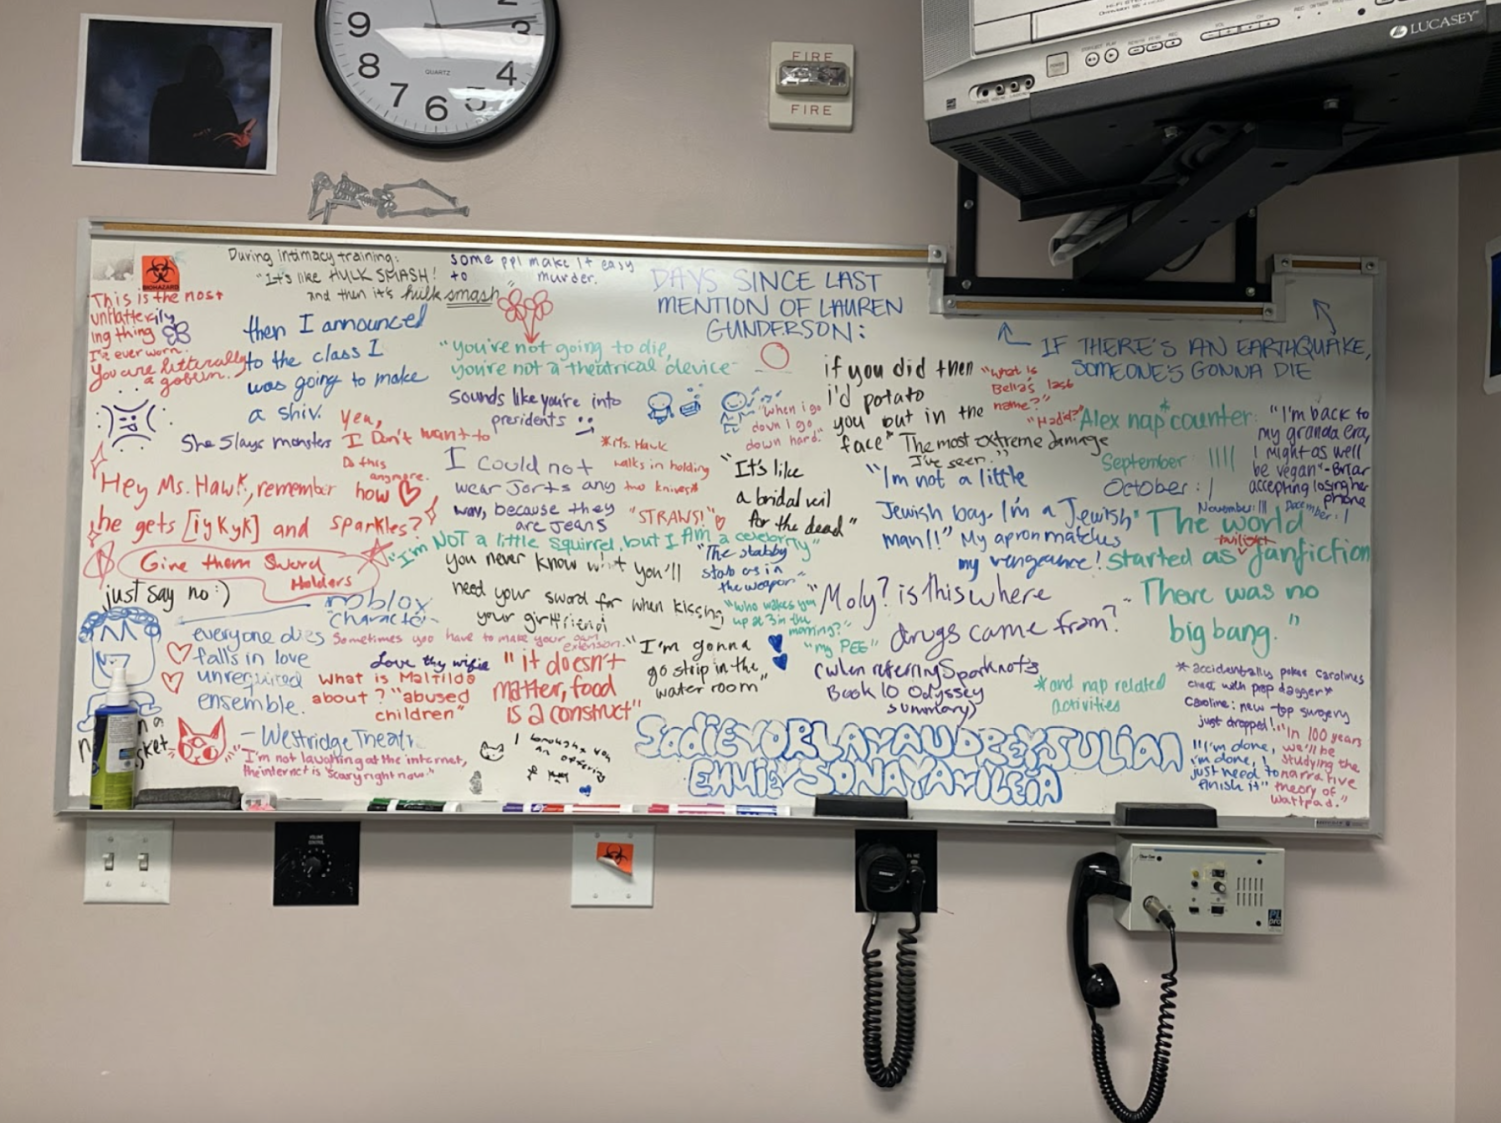 2
9 3
8 QUARTZ 4
7 6 5
FIRE
FIRE
LUCASEY
BIOHAZARD
During intimacy training:
"It's like HULK SMASH!
and then it's hulk smash"
some ppl make it easy
to murder.
DAYS SINCE LAST
MENTION OF LAUREN
GUNDERSON:
IF THERE'S AN EARTHQUAKE,
SOMEONE'S GONNA DIE
This is the most
ing thing
I've ever worn.
You are litterally
a goblin.
then I announced
to the class I
was going to make
a shiv.
She slays monsters
yea,
I Don't want to
Do this
anymore.
"you're not going to die,
you're not a theatrical device"
sounds like you're into
presidents
"when i go
down I go
down hard."
if you did then
i'd potato
you out in the
face"
"what is
Bella's last
name?"
The most extreme damage
I've seen."
Alex nap counter:
September IIII
October: I
November: III December: I
"I'm back to
my granda era,
I might as well
be vegan" - Briar
accepting losing her
phone
*Ms. Hawk
walks in holding
two knives*
"STRAWS!"
I could not
wear Jorts any
way, because they
are jeans
"It's like
a bridal veil
for the dead"
"I'm not a little
Jewish boy. I'm a Jewish
man!!"
My apron matches
my vengeance!
"The world
started as twilight fanfiction
There was no
big bang."
Hey Ms. Hawk, remember how
he gets [iykyk] and sparkles?
Give them Sword
Holders
just say no :)
"I'm NOT a little squirrel, but I AM a celebrity"
you never know what you'll
need your sword for when kissing
your girlfriend
"The stabby
stab as in
the weapon"
"who wakes you
up at 3 in the
morning?"
"my PEE"
"Moly? is this where
drugs came from?"
(when referring Sparknot's
Book 10 Odyssey
summary)
*and nap related
activities
roblox
character
everyone dies
falls in love
unrequired
ensemble.
- Westridge Theatre
Sometimes you have to make your own extension.
Love thy wifie
What is Maltilda
about? "abused
children"
"it doesn't
matter, food
is a construct"
"I'm gonna
go strip in the
water room"
"I'm not laughing at the internet,
the interact is "scary right now."
SadieVORLAYAUDREYJULIAN
*accidentally pokes Carolines
chest with prop dagger*
Caroline: new top surgery
just dropped!
"I'm done,
I'm done, I
just need to
finish it"
"In 100 years
we'll be
studying the
narrative
theory of
Wattpad."